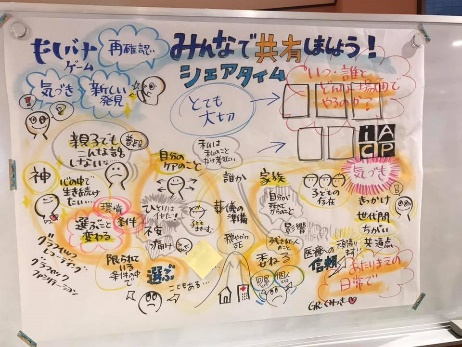 もしバナ
ゲーム
再確認
みんなで共有しましょう!
シェアタイム
気づき
新しい
発見
とても
大切
いつ・誰と
どんな場面で
やるのか?
iACP
親子でも
こんな話
しないな
普段
私は
私のこと
自分の
ケアのこと
誰か
家族
気づき
神
心の中で
生き続け
たい…
子どもの
存在
きっかけ
環境
条件
選ぶこと
変わる
不安
葬儀の
準備
影響
世代間
ちがい
共通点
痛み
限られて
いる
条件の中で
選ぶ
こともある…
委ねる
医療への
信頼
あたりまえの
日常で
グラフィック
レコーディング
グラフィック
ファシリテーション